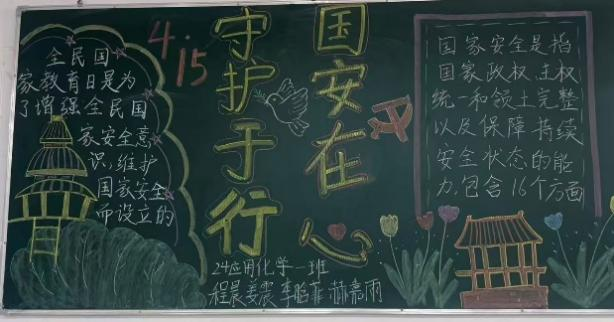 全民国
家教育日是为
了增强全民国
家安全意
识,维护
国家安全
而设立的
4.15
国安在心
守护于行
国家安全是指
国家政权、主权
统一和领土完整
以及保障持续
安全状态的能
力,包含16个方面
24应用化学一班
程晨 姜震 李晗菲 赫嘉雨